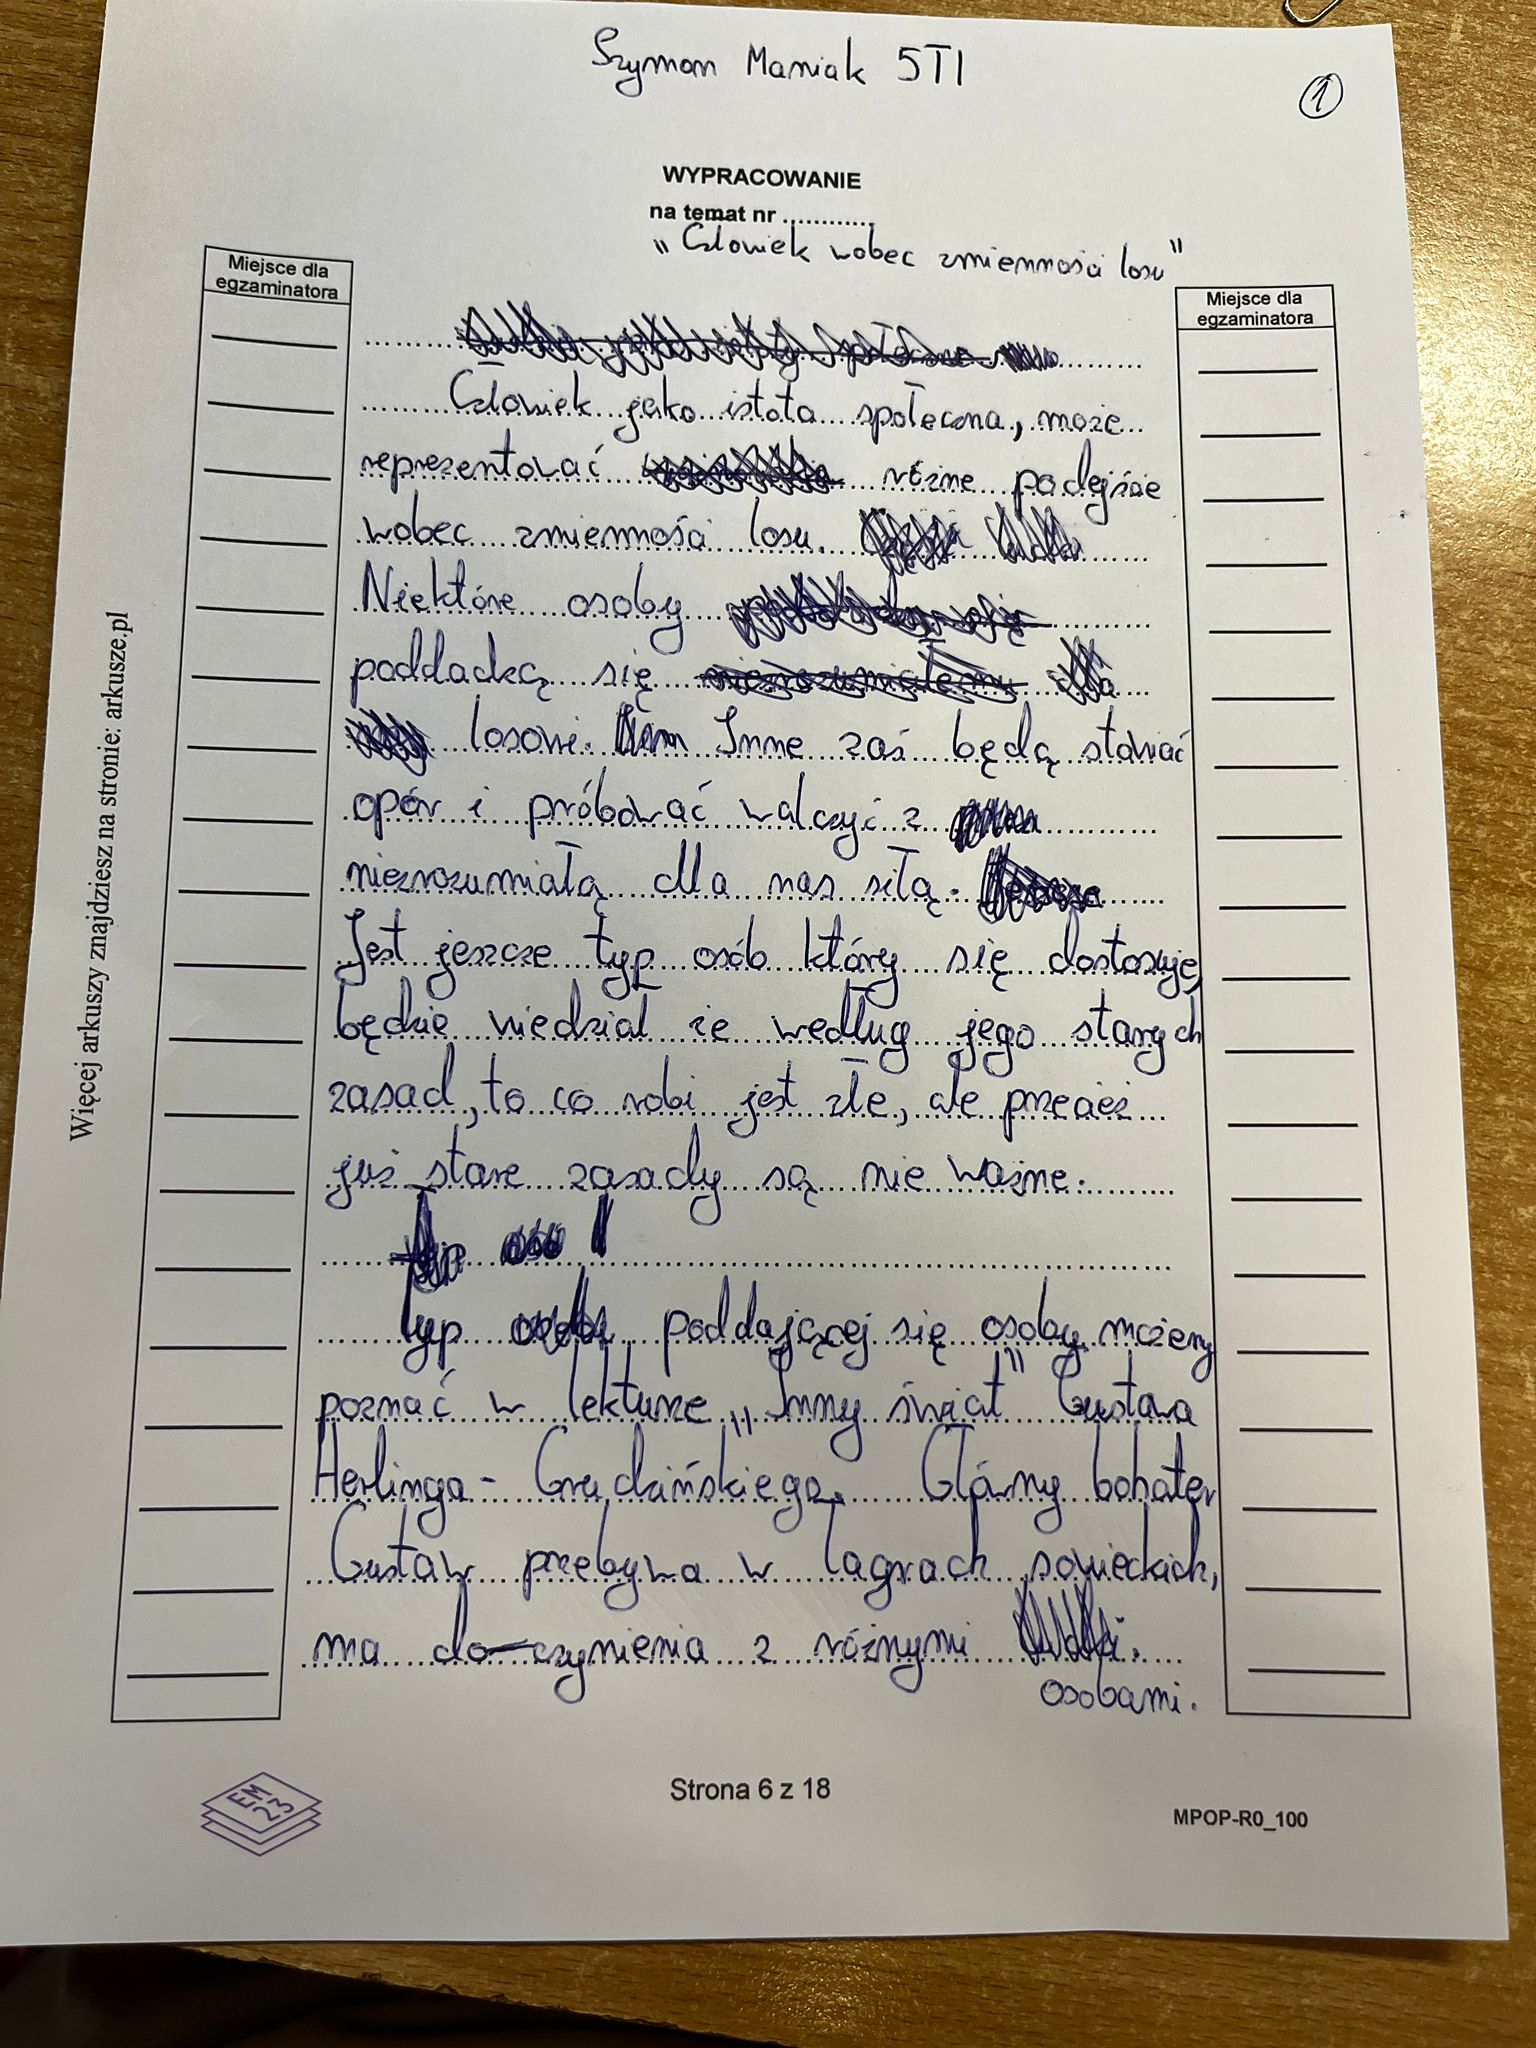 Szymon Maniak 5TI
1
WYPRACOWANIE
na temat nr ............
"Człowiek wobec zmienności losu"
Miejsce dla
egzaminatora
Miejsce dla
egzaminatora
Człowiek jako istota społeczna, może
reprezentować różne podejście
wobec zmienności losu.
Niektóre osoby
poddadzą się
losowi. Inne zaś będą stawiać
opór i próbować walczyć z
niezrozumiałą dla nas siłą.
Jest jeszcze typ osób który się dostosuje,
będzie wiedział że według jego starych
zasad, to co robi jest złe, ale przecież
już stare zasady są nie ważne.
Typ poddającej się osoby możemy
poznać w lekturze „Inny świat" Gustawa
Herlinga - Grudzińskiego. Główny bohater
Gustaw przebywa w łagrach sowieckich,
ma do czynienia z różnymi
osobami.
Więcej arkuszy znajdziesz na stronie: arkusze.pl
EM
23
Strona 6 z 18
MPOP-R0_100